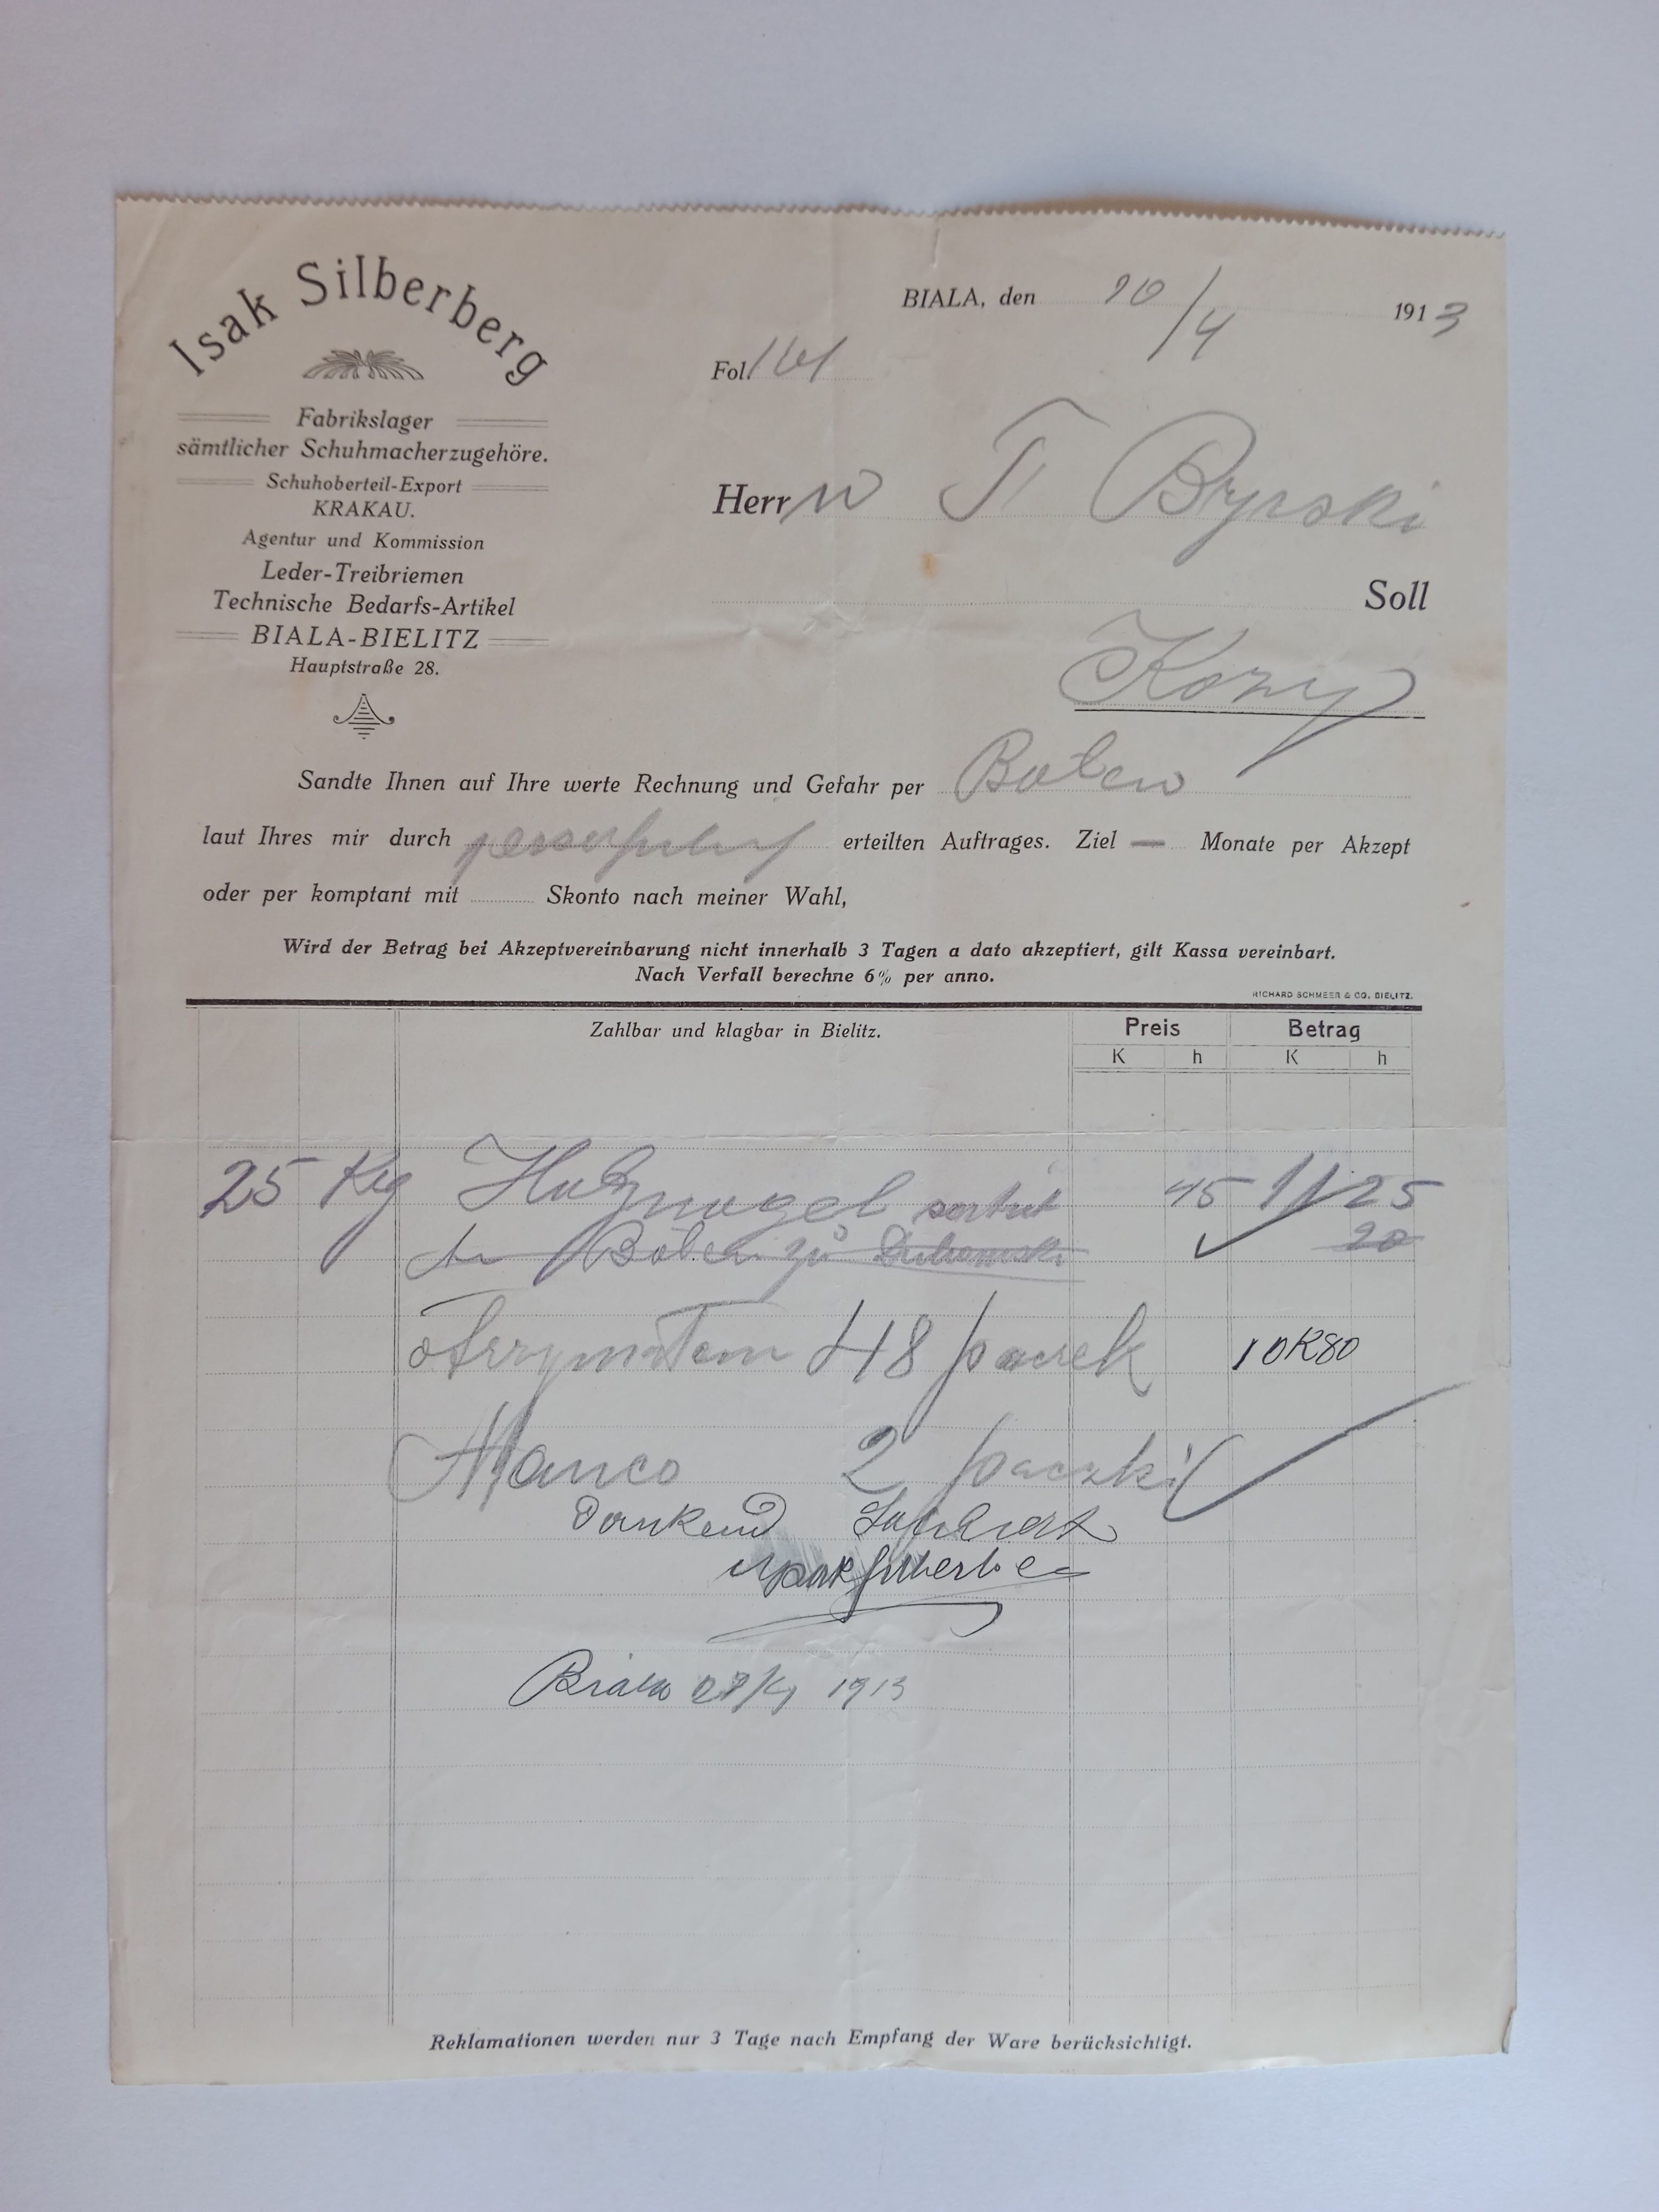 Isak Silberberg
Fabrikslager
sämtlicher Schuhmacherzugehöre.
Schuhoberteil-Export
KRAKAU.
Agentur und Kommission
Leder-Treibriemen
Technische Bedarfs-Artikel
BIALA-BIELITZ
Hauptstraße 28.
BIALA, den 10/4 1913
Fol.
Herrn Byrski
Soll
Kozy
Sandte Ihnen auf Ihre werte Rechnung und Gefahr per Boten
laut Ihres mir durch erteilten Auftrages. Ziel — Monate per Akzept
oder per komptant mit Skonto nach meiner Wahl,
Wird der Betrag bei Akzeptvereinbarung nicht innerhalb 3 Tagen a dato akzeptiert, gilt Kassa vereinbart.
Nach Verfall berechne 6% per anno.
RICHARD SCHMEER & CO. BIELITZ.
Zahlbar und klagbar in Bielitz. Preis Betrag
K h K h
25 Kg Holznagel sortirt 45 11 25
Boten zu 20
otrzymałem 48 paczek 10K80
Manco 2 paczki
Dankend
Isak Silberberg
Biala 1913
Reklamationen werden nur 3 Tage nach Empfang der Ware berücksichtigt.